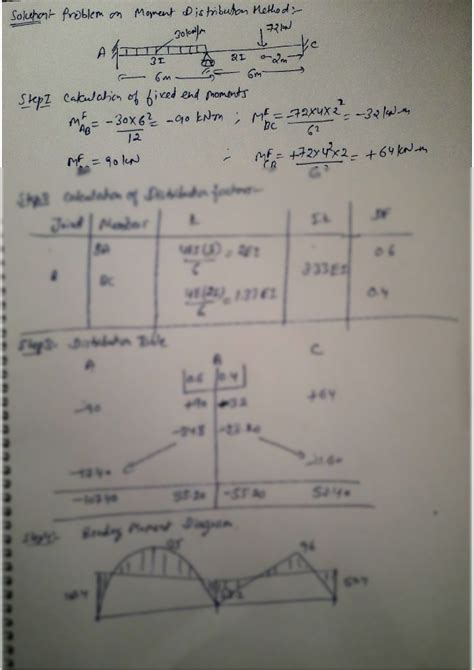 Solution:- Problem on Moment Distribution Method:-
30kN/m 72kN
A 3I 2I C
6m 6m 2m
Step1 Calculation of fixed end moments
M^F_AB = -30×6²/12 = -90 kNm ; M^F_BC = -72×4×2²/6² = -32 kN-m
M^F = 90 kN ; M^F_CB = +72×4²×2/6² = + 64 kN-m
Calculation of Distribution factors:-
Joint Members
BA 4EI(3)/6 = 2EI 0.6
3.33EI
BC 4E(2I)/6 = 1.33EI 0.4
Distribution Table
A C
0.6 0.4
-90 +90 -32 +64
-34.8 -23.20
-17.40 -11.60
-107.40 55.20 -55.20 52.40
Bending Moment Diagram
96